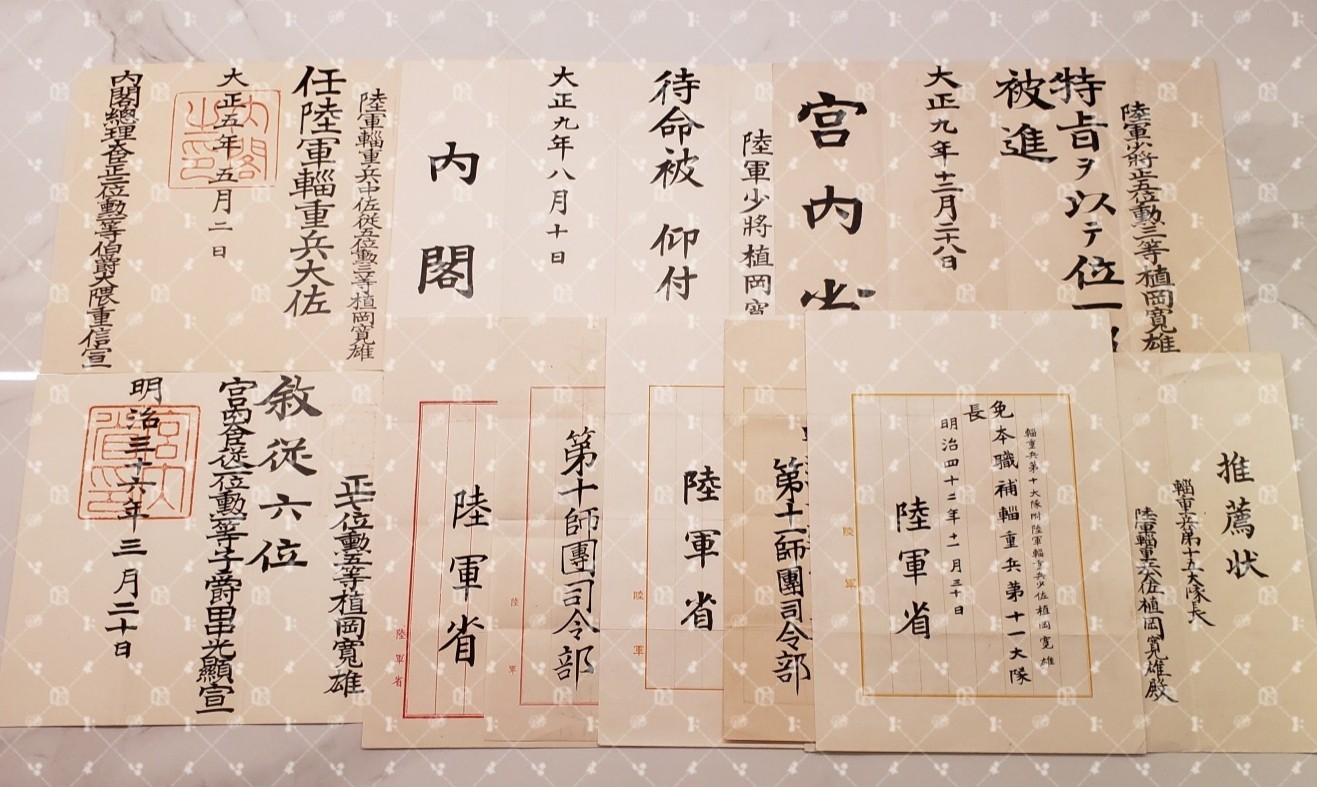 陸軍少將正五位勳三等植岡寬雄
特旨ヲ以テ位一
被進
大正九年十二月二十八日
宮内省
陸軍少將植岡寬
待命被仰付
大正九年八月十日
内閣
陸軍輜重兵中佐從五位勳三等植岡寬雄
任陸軍輜重兵大佐
大正五年五月二日
内閣之印
内閣總理大臣正二位勳一等伯爵大隈重信宣
推薦状
輜重兵第十五大隊長
陸軍輜重兵大佐植岡寬雄殿
輜重兵第十大隊附陸軍輜重兵少佐植岡寬雄
免本職補輜重兵第十一大隊
長
明治四十二年十一月三十日
陸軍省
陸軍
第十一師團司令部
陸軍省
陸軍
第十師團司令部
陸軍
陸軍省
陸軍省
正七位勳五等植岡寬雄
敘從六位
宮内大臣從二位勳一等子爵田中光顯宣
明治三十六年三月二十日
宮内省印